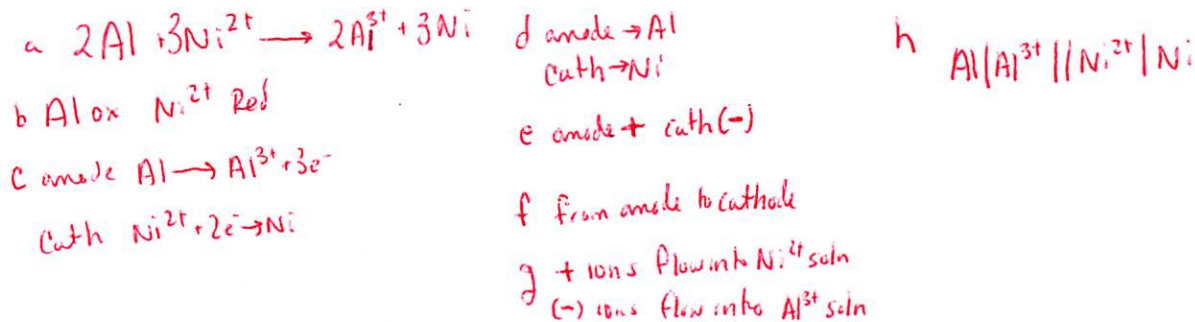 a 2Al + 3Ni²⁺ → 2Al³⁺ + 3Ni
b Al ox Ni²⁺ Red
c anode Al → Al³⁺ + 3e⁻
Cath Ni²⁺ + 2e⁻ → Ni
d anode → Al
Cath → Ni
e anode + cath (-)
f from anode to cathode
g + ions flow into Ni²⁺ soln
(-) ions flow into Al³⁺ soln
h Al|Al³⁺||Ni²⁺|Ni